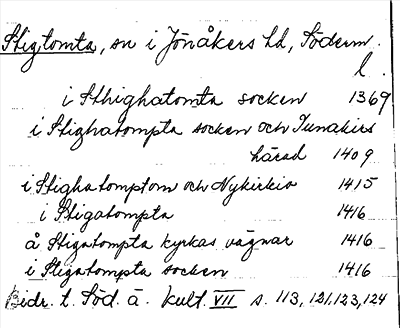 Stigtomta, sn i Jönåkers hd, Söderm.
l.
i Sthighatomta socken 1369
i Stighatompta socken och Junakirs
härad 1409
i Stighatomptom och Nykirkio 1415
i Stigatompta 1416
å Stigatompta kyrkas vägnar 1416
i Stigatompta socken 1416
Bidr. t. Söd. ä. kult. VII s. 113, 121, 123, 124